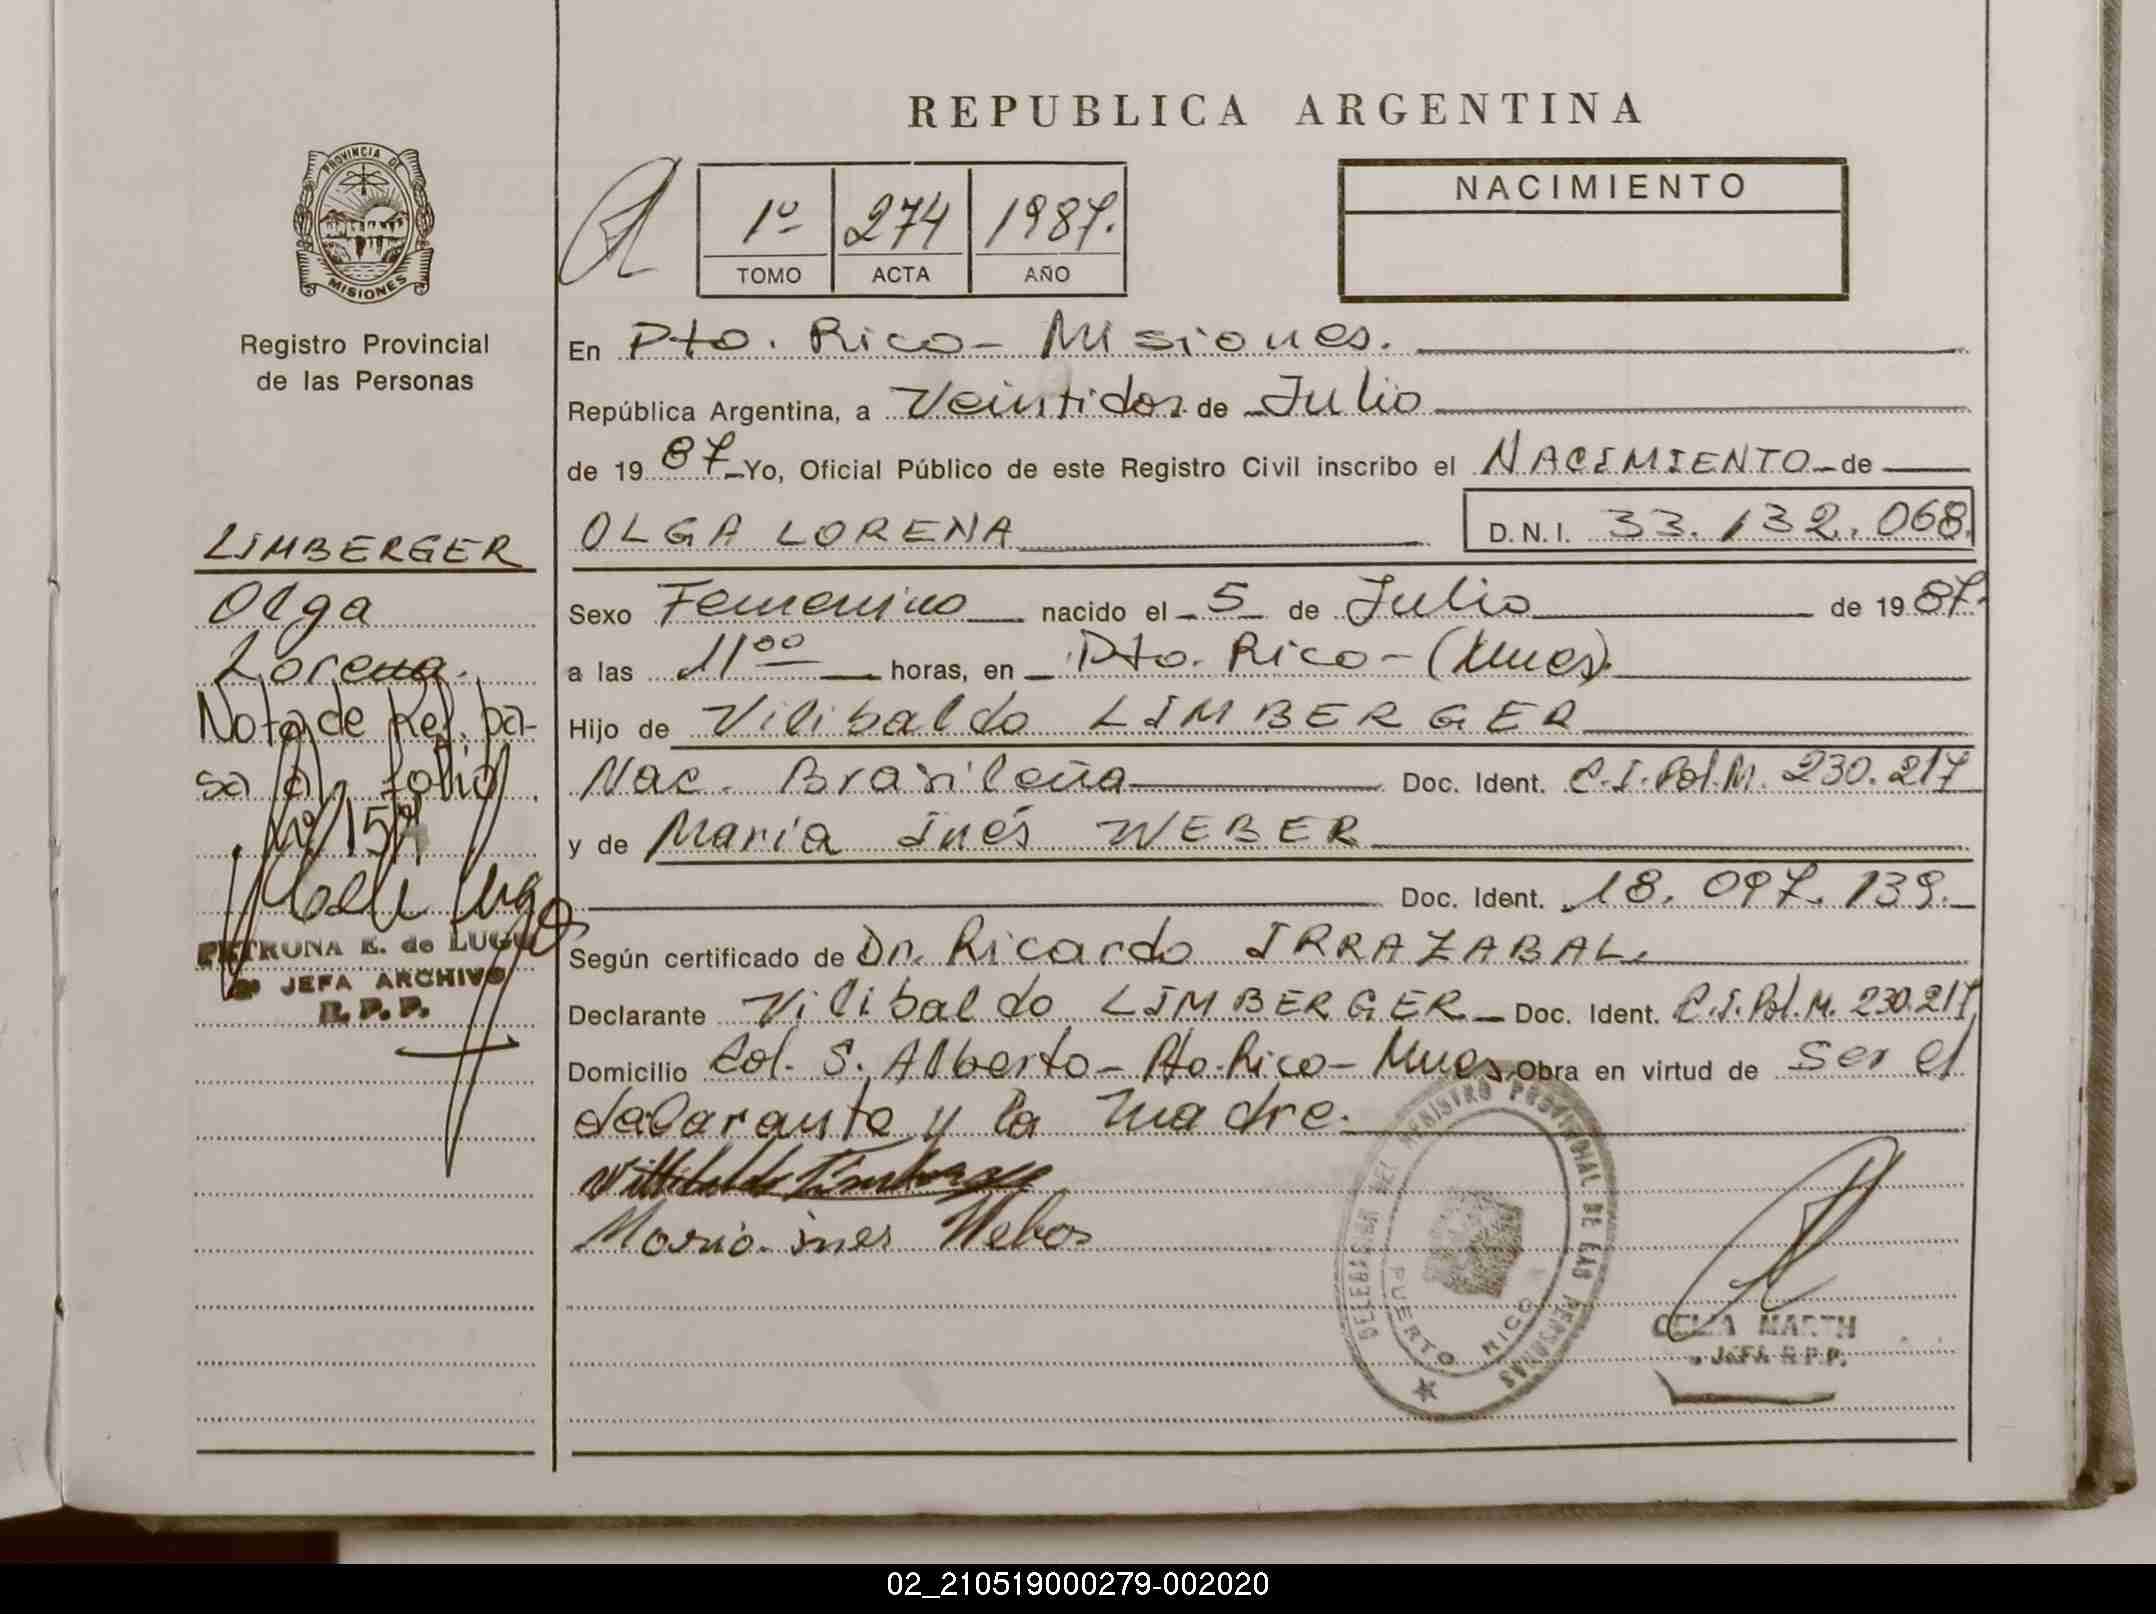 REPUBLICA ARGENTINA
PROVINCIA DE
MISIONES
Registro Provincial
de las Personas
1º 274 1987.
TOMO ACTA AÑO
NACIMIENTO
En Pto. Rico - Misiones.
República Argentina, a Veintidos de Julio
de 19 87 Yo, Oficial Público de este Registro Civil inscribo el NACIMIENTO de
OLGA LORENA D.N.I. 33.132.068.
Sexo Femenino nacido el 5 de Julio de 19 87.
a las 11 00 horas, en Pto. Rico - (Mnes).
Hijo de Vilibaldo LIMBERGER
Nac. Brasileña Doc. Ident. C.I. Pol. M. 230.217
y de María Inés WEBER
Doc. Ident. 18.097.139.
Según certificado de Dr. Ricardo IRRAZABAL.
Declarante Vilibaldo LIMBERGER Doc. Ident. C.I. Pol. M. 230.217
Domicilio Col. S. Alberto - Pto. Rico - Mnes Obra en virtud de ser el
delarante y la madre.
Maria ines Weber
LIMBERGER
Olga
Lorena.
Nota de Ref. pa-
sa al folio
Nº 15
PETRONA E. de LUGO
JEFA ARCHIVO
R.P.P.
DELEGACION DEL REGISTRO PROVINCIAL DE LAS PERSONAS
PUERTO RICO
CELIA MARTH
JEFA R.P.P.
02_210519000279-002020